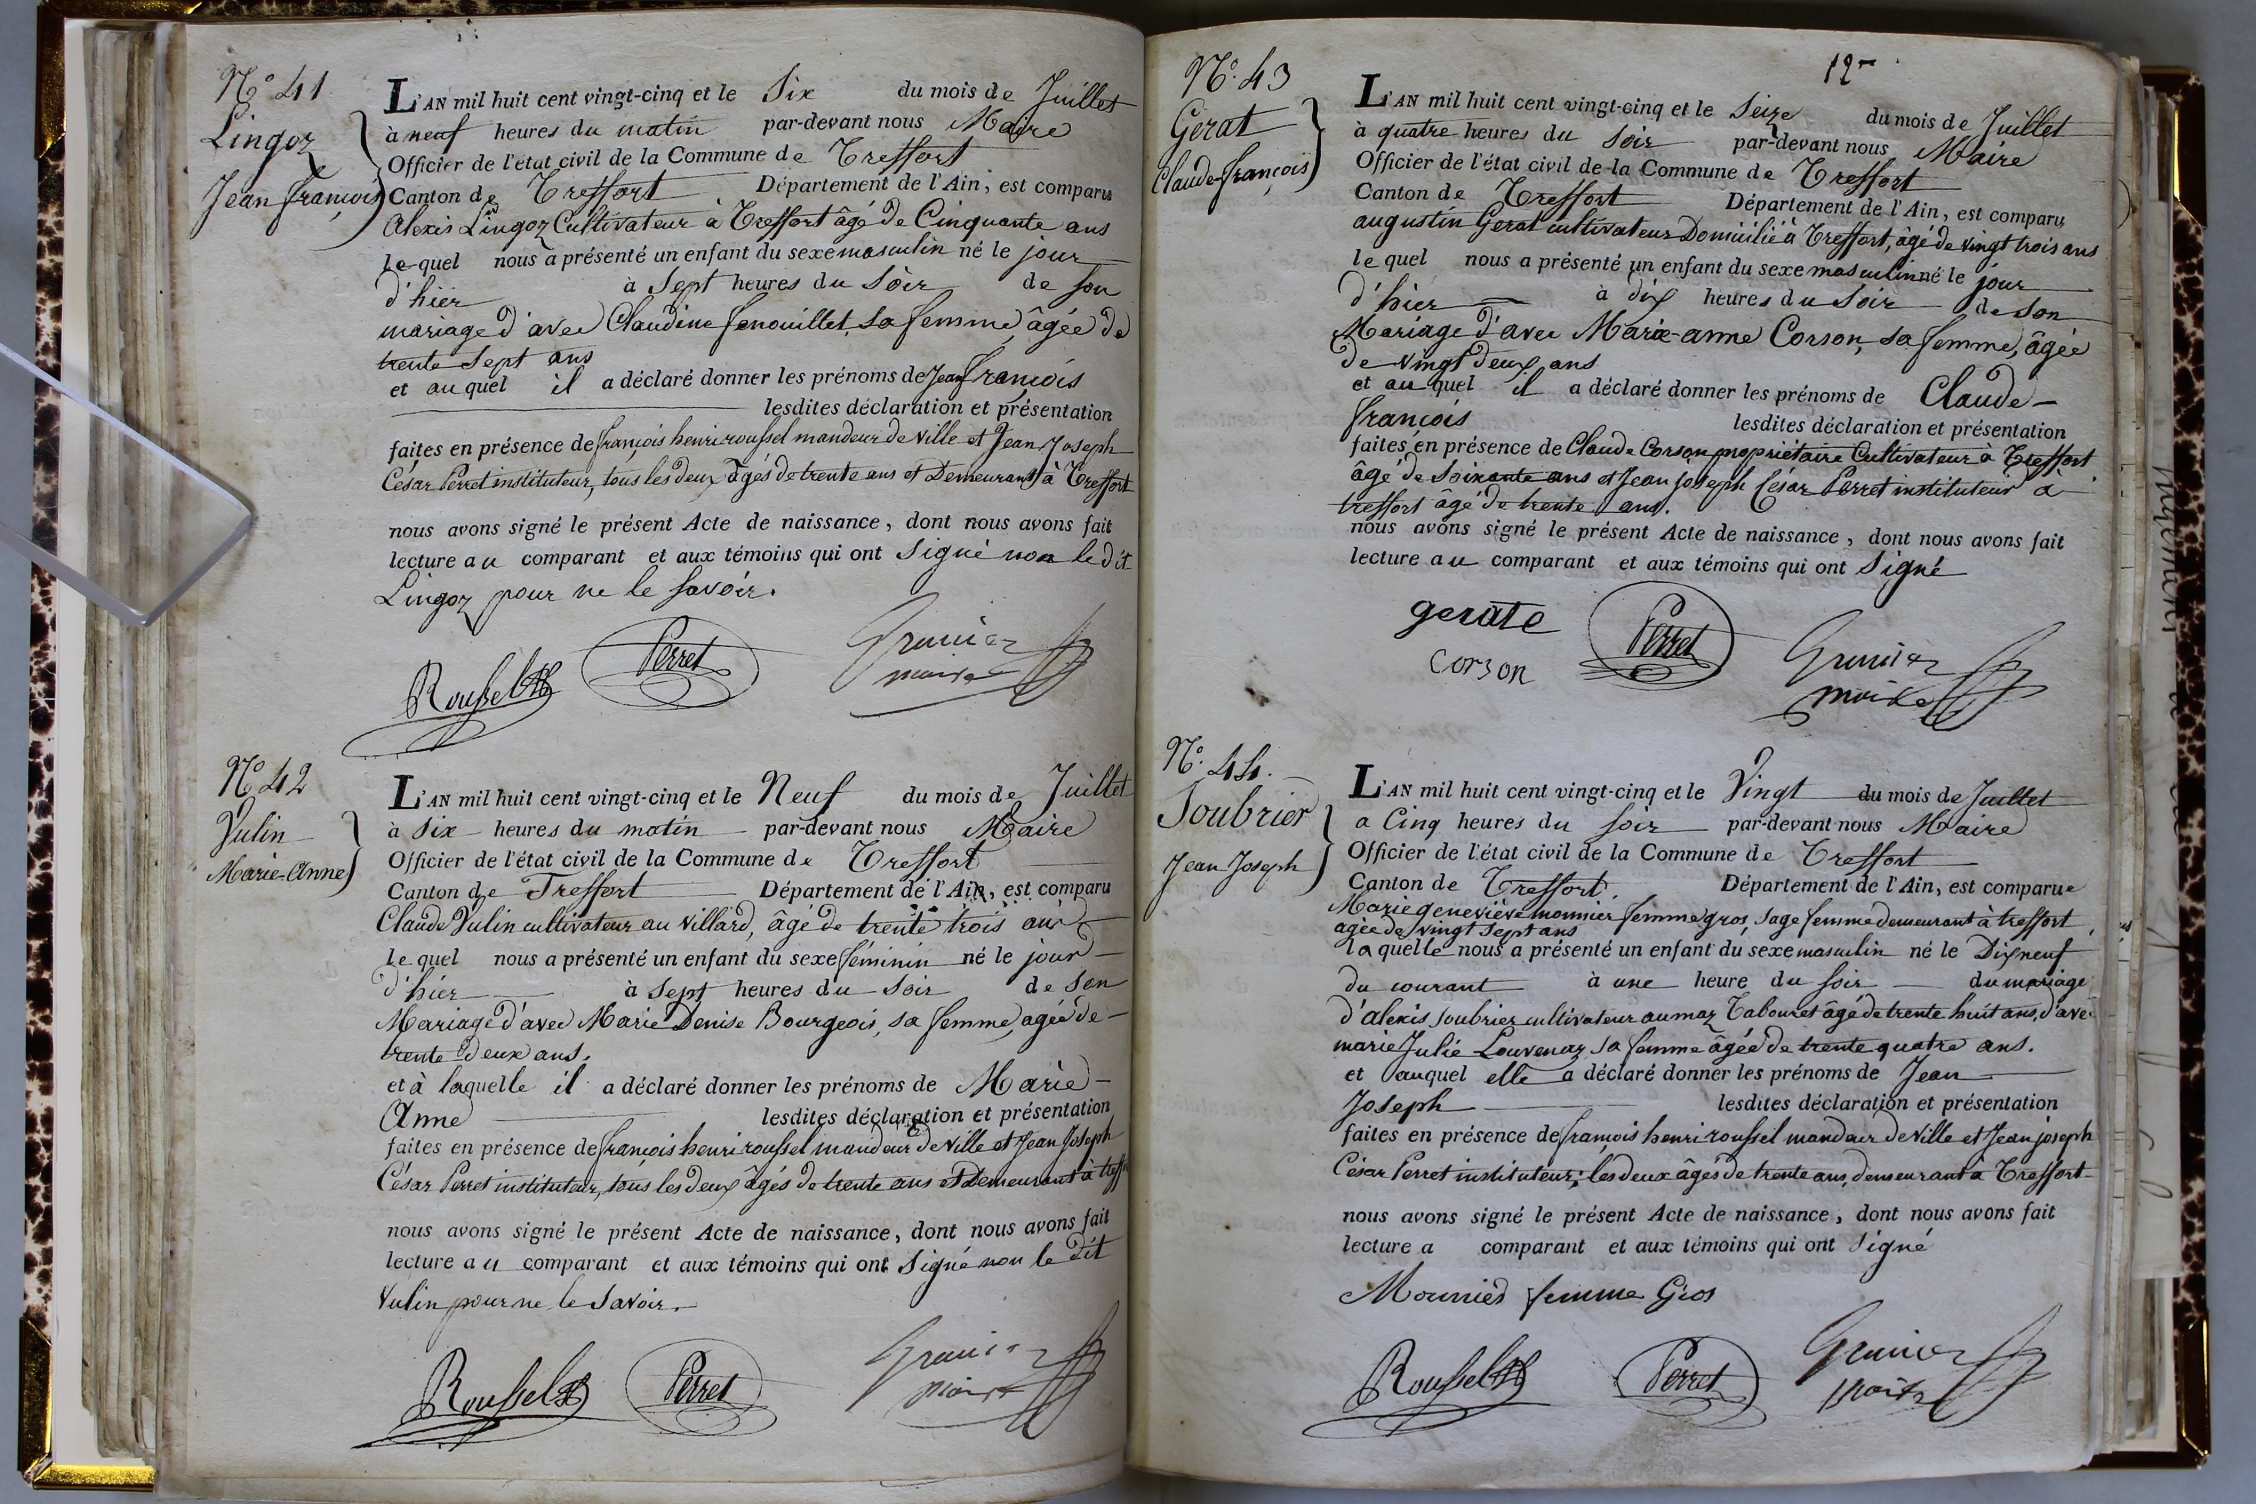 N.o 41
Lingoz
Jean François
L'AN mil huit cent vingt-cinq et le Six du mois de Juillet
à neuf heures du matin par-devant nous Maire
Officier de l'état civil de la Commune de Treffort
Canton de Treffort Département de l'Ain, est comparu
Alexis Lingoz Cultivateur à Treffort âgé de Cinquante ans
lequel nous a présenté un enfant du sexe masculin né le jour
d'hier à Sept heures du Soir de son
mariage d'avec Claudine fenouillet, sa femme, âgée de
trente Sept ans
et auquel il a déclaré donner les prénoms de Jean François
lesdites déclaration et présentation
faites en présence de françois henri roussel mandeur de Ville et Jean Joseph
César Perret instituteur, tous les deux âgés de trente ans et Demeurant à Treffort
nous avons signé le présent Acte de naissance, dont nous avons fait
lecture au comparant et aux témoins qui ont Signé non le dit
Lingoz pour ne le Savoir.
Roussel Perret Grunier
maire
N.o 42
Vulin
Marie-Anne
L'AN mil huit cent vingt-cinq et le Neuf du mois de Juillet
à Six heures du matin par-devant nous Maire
Officier de l'état civil de la Commune de Treffort
Canton de Treffort Département de l'Ain, est comparu
Claude Vulin cultivateur au Villard, âgé de trente trois ans
lequel nous a présenté un enfant du sexe féminin né le jour
d'hier à Sept heures du Soir de Son
Mariage d'avec Marie Denise Bourgeois, sa femme, agée de
trente Deux ans.
et à laquelle il a déclaré donner les prénoms de Marie
Anne lesdites déclaration et présentation
faites en présence de françois henri roussel mandeur de Ville et Jean Joseph
César Perret instituteur, tous les deux âgés de trente ans et Demeurant à treffort
nous avons signé le présent Acte de naissance, dont nous avons fait
lecture au comparant et aux témoins qui ont Signé non le dit
Vulin pour ne le Savoir.
Roussel Perret Grunier
maire
12
N.o 43
Gerat
Claude-françois
L'AN mil huit cent vingt-cinq et le Seize du mois de Juillet
à quatre heures du Soir par-devant nous Maire
Officier de l'état civil de la Commune de Treffort
Canton de Treffort Département de l'Ain, est comparu
augustin Gerat cultivateur Domicilié à Treffort, âgé de vingt trois ans
lequel nous a présenté un enfant du sexe masculin né le jour
d'hier à dix heures du Soir de son
Mariage d'avec Marie-anne Corson, sa femme, âgée
de vingt deux ans
et auquel il a déclaré donner les prénoms de Claude-
françois lesdites déclaration et présentation
faites en présence de Claude Corson propriétaire Cultivateur à Treffort
âgé de Soixante ans et Jean joseph César Perret instituteur à
treffort âgé de trente ans.
nous avons signé le présent Acte de naissance, dont nous avons fait
lecture au comparant et aux témoins qui ont Signé
gerate Perret Grunier
corson maire
N.o 44.
Soubrier
Jean Joseph
L'AN mil huit cent vingt-cinq et le Vingt du mois de Juillet
a Cinq heures du Soir par-devant nous Maire
Officier de l'état civil de la Commune de Treffort
Canton de Treffort, Département de l'Ain, est comparue
Marie geneviève monnier femme gros, Sage femme demeurant à treffort
agée de vingt Sept ans
laquelle nous a présenté un enfant du sexe masculin né le Dix neuf
du courant à une heure du Soir du mariage
d'alexis Soubrier cultivateur au maz Tabouret âgé de trente huit ans, d'avec
marie Julie Louvenaz sa femme âgée de trente quatre ans.
et auquel elle a déclaré donner les prénoms de Jean
Joseph lesdites déclaration et présentation
faites en présence de françois henri roussel mandeur de Ville et Jean joseph
César Perret instituteur, les deux âgés de trente ans, demeurant à Treffort
nous avons signé le présent Acte de naissance, dont nous avons fait
lecture a comparant et aux témoins qui ont Signé
Monnier femme Gros
Roussel Perret Grunier
maire